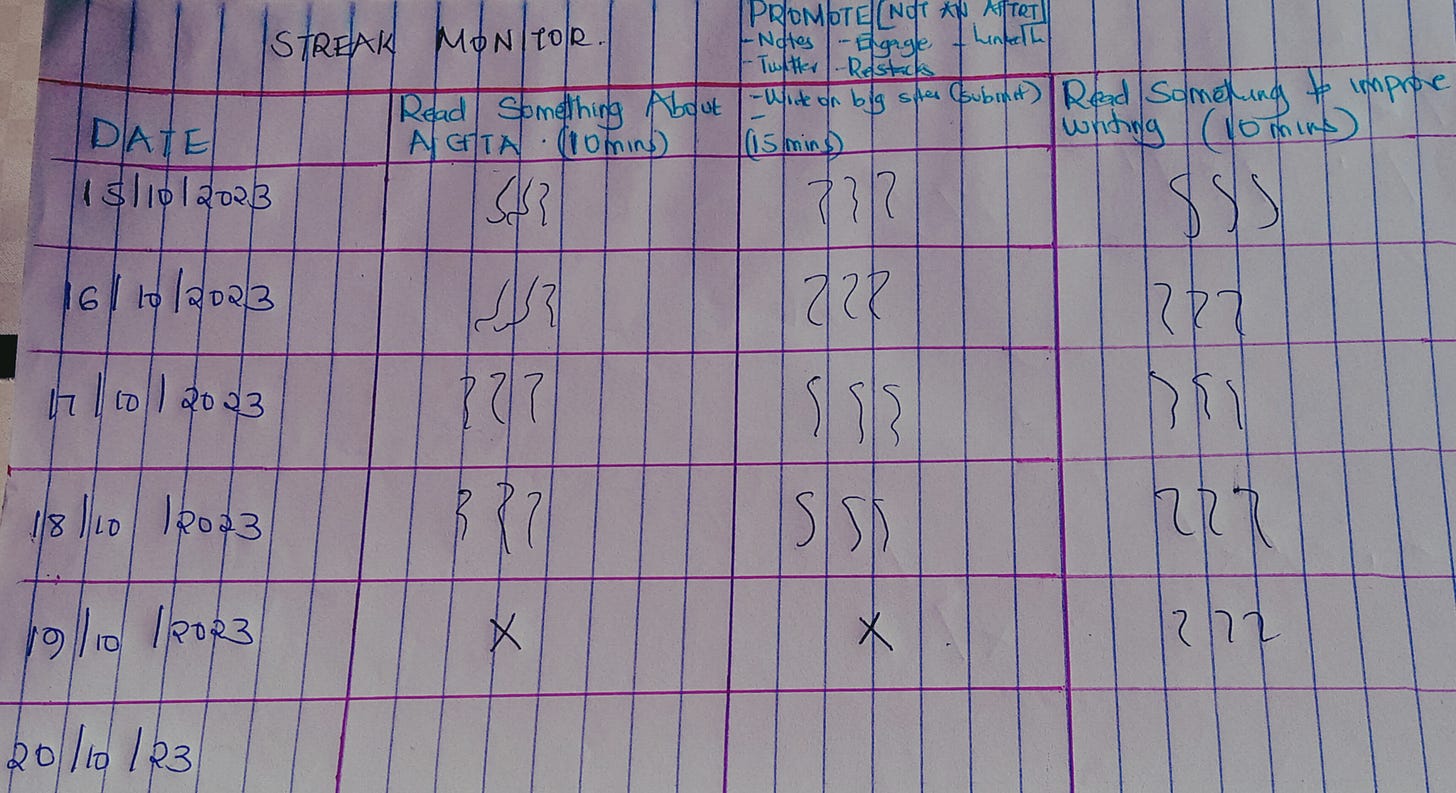 STREAK MONITOR.
PROMOTE [NOT AN AFTRT]
-Notes -Engage - LinkedIn
-Twitter -Restacks
DATE
Read Something About
AfCFTA. (10mins)
-Write on big sites (submit)
-
(15mins)
Read Something to improve
writing (10mins)
15/10/2023
16/10/2023
17/10/2023
18/10/2023
19/10/2023 X X
20/10/23